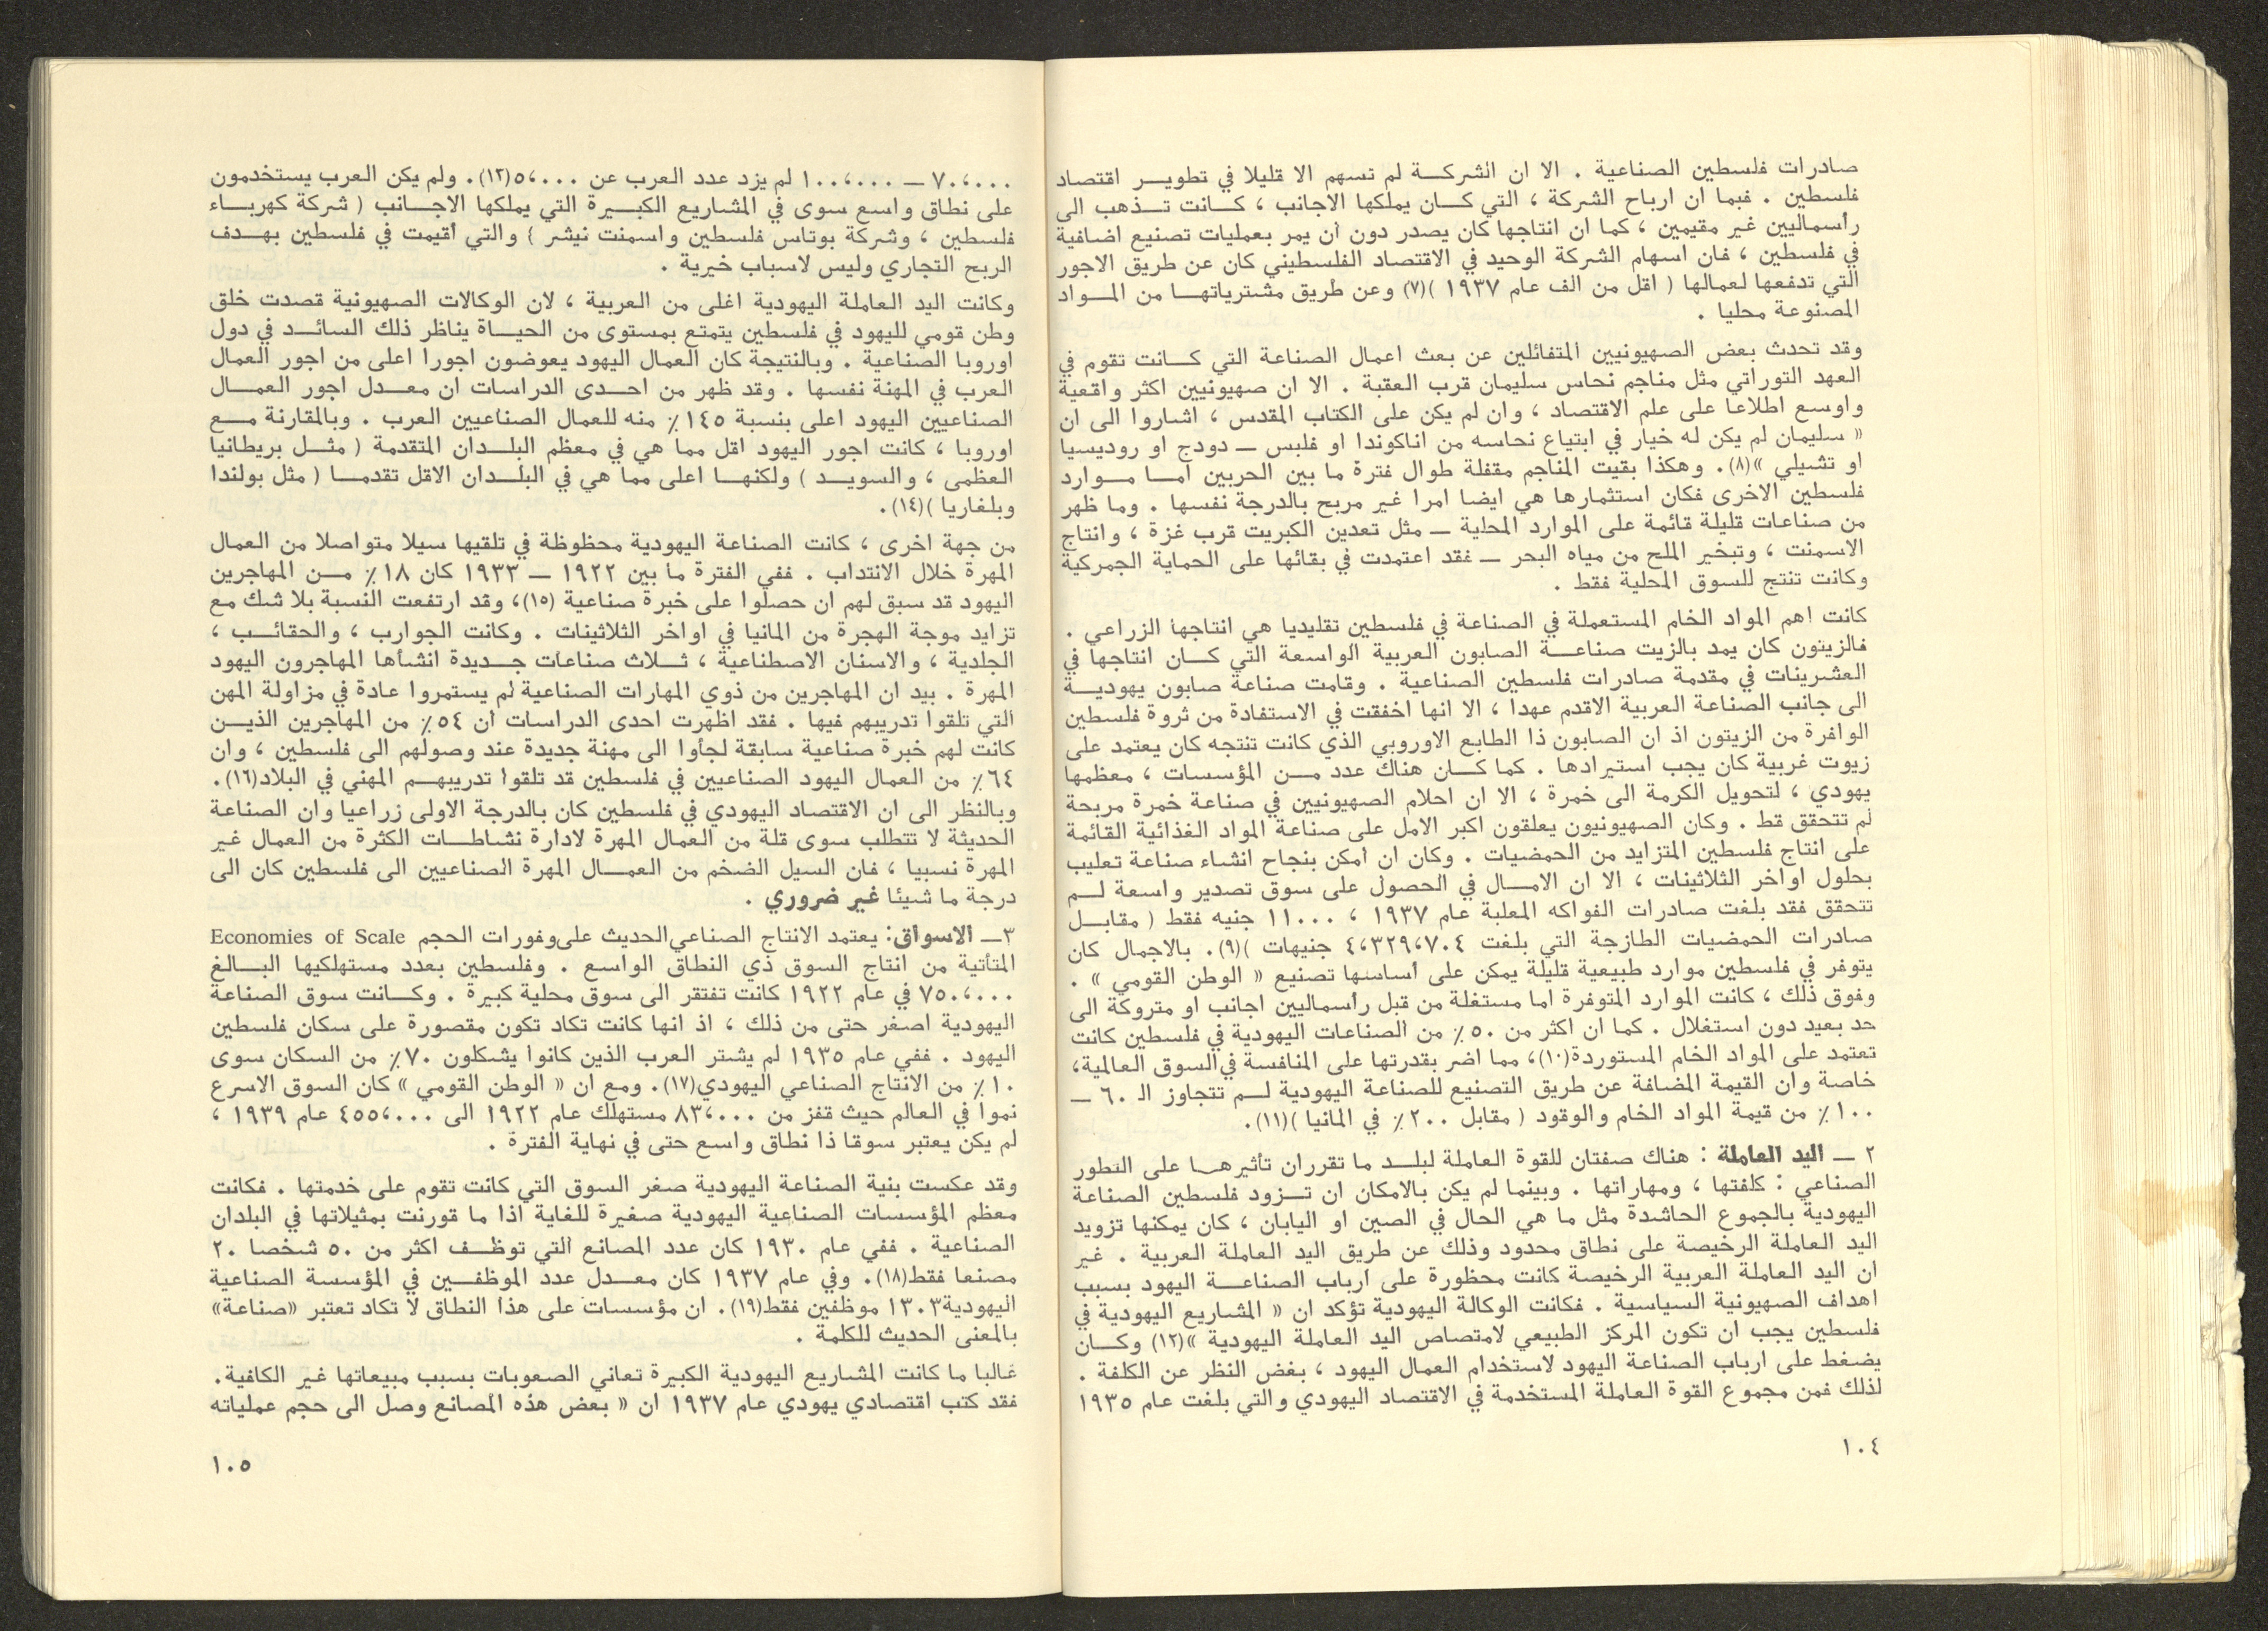 صادرات فلسطين الصناعية . الا ان الشركة لم تسهم الا قليلا في تطوير اقتصاد
فلسطين . فبما ان ارباح الشركة ، التي كان يملكها الاجانب ، كانت تذهب الى
رأسماليين غير مقيمين ، كما ان انتاجها كان يصدر دون أن يمر بعمليات تصنيع اضافية
في فلسطين ، فان اسهام الشركة الوحيد في الاقتصاد الفلسطيني كان عن طريق الاجور
التي تدفعها لعمالها ( اقل من الف عام ١٩٣٧ )(٧) وعن طريق مشترياتها من المواد
المصنوعة محليا .
وقد تحدث بعض الصهيونيين المتفائلين عن بعث اعمال الصناعة التي كانت تقوم في
العهد التوراتي مثل مناجم نحاس سليمان قرب العقبة . الا ان صهيونيين اكثر واقعية
واوسع اطلاعا على علم الاقتصاد ، وان لم يكن على الكتاب المقدس ، اشاروا الى ان
« سليمان لم يكن له خيار في ابتياع نحاسه من اناكوندا او فلبس — دودج او روديسيا
او تشيلي »(٨). وهكذا بقيت المناجم مقفلة طوال فترة ما بين الحربين اما موارد
فلسطين الاخرى فكان استثمارها هي ايضا امرا غير مربح بالدرجة نفسها . وما ظهر
من صناعات قليلة قائمة على الموارد المحلية — مثل تعدين الكبريت قرب غزة ، وانتاج
الاسمنت ، وتبخير الملح من مياه البحر — فقد اعتمدت في بقائها على الحماية الجمركية
وكانت تنتج للسوق المحلية فقط .
كانت اهم المواد الخام المستعملة في الصناعة في فلسطين تقليديا هي انتاجها الزراعي .
فالزيتون كان يمد بالزيت صناعة الصابون العربية الواسعة التي كان انتاجها في
العشرينات في مقدمة صادرات فلسطين الصناعية . وقامت صناعة صابون يهودية
الى جانب الصناعة العربية الاقدم عهدا ، الا انها اخفقت في الاستفادة من ثروة فلسطين
الوافرة من الزيتون اذ ان الصابون ذا الطابع الاوروبي الذي كانت تنتجه كان يعتمد على
زيوت غربية كان يجب استيرادها . كما كان هناك عدد من المؤسسات ، معظمها
يهودي ، لتحويل الكرمة الى خمرة ، الا ان احلام الصهيونيين في صناعة خمرة مربحة
لم تتحقق قط . وكان الصهيونيون يعلقون اكبر الامل على صناعة المواد الغذائية القائمة
على انتاج فلسطين المتزايد من الحمضيات . وكان ان أمكن بنجاح انشاء صناعة تعليب
بحلول اواخر الثلاثينات ، الا ان الامال في الحصول على سوق تصدير واسعة لم
تتحقق فقد بلغت صادرات الفواكه المعلبة عام ١٩٣٧ ، ١١٠٠٠ جنيه فقط ( مقابل
صادرات الحمضيات الطازجة التي بلغت ٤،٣٢٩،٧٠٤ جنيهات )(٩). بالاجمال كان
يتوفر في فلسطين موارد طبيعية قليلة يمكن على أساسها تصنيع « الوطن القومي » .
وفوق ذلك ، كانت الموارد المتوفرة اما مستغلة من قبل رأسماليين اجانب او متروكة الى
حد بعيد دون استغلال . كما ان اكثر من ٥٠٪ من الصناعات اليهودية في فلسطين كانت
تعتمد على المواد الخام المستوردة(١٠)، مما اضر بقدرتها على المنافسة في السوق العالمية،
خاصة وان القيمة المضافة عن طريق التصنيع للصناعة اليهودية لم تتجاوز الـ ٦٠ —
١٠٠٪ من قيمة المواد الخام والوقود ( مقابل ٢٠٠٪ في المانيا )(١١).
٢ — اليد العاملة : هناك صفتان للقوة العاملة لبلد ما تقرران تأثيرها على التطور
الصناعي : كلفتها ، ومهاراتها . وبينما لم يكن بالامكان ان تزود فلسطين الصناعة
اليهودية بالجموع الحاشدة مثل ما هي الحال في الصين او اليابان ، كان يمكنها تزويد
اليد العاملة الرخيصة على نطاق محدود وذلك عن طريق اليد العاملة العربية . غير
ان اليد العاملة العربية الرخيصة كانت محظورة على ارباب الصناعة اليهود بسبب
اهداف الصهيونية السياسية . فكانت الوكالة اليهودية تؤكد ان « المشاريع اليهودية في
فلسطين يجب ان تكون المركز الطبيعي لامتصاص اليد العاملة اليهودية »(١٢) وكان
يضغط على ارباب الصناعة اليهود لاستخدام العمال اليهود ، بغض النظر عن الكلفة .
لذلك فمن مجموع القوة العاملة المستخدمة في الاقتصاد اليهودي والتي بلغت عام ١٩٣٥
١٠٤
٧٠،٠٠٠ — ١٠٠،٠٠٠ لم يزد عدد العرب عن ٥،٠٠٠(١٣). ولم يكن العرب يستخدمون
على نطاق واسع سوى في المشاريع الكبيرة التي يملكها الاجانب ( شركة كهرباء
فلسطين ، وشركة بوتاس فلسطين واسمنت نيشر ) والتي أقيمت في فلسطين بهدف
الربح التجاري وليس لاسباب خيرية .
وكانت اليد العاملة اليهودية اغلى من العربية ، لان الوكالات الصهيونية قصدت خلق
وطن قومي لليهود في فلسطين يتمتع بمستوى من الحياة يناظر ذلك السائد في دول
اوروبا الصناعية . وبالنتيجة كان العمال اليهود يعوضون اجورا اعلى من اجور العمال
العرب في المهنة نفسها . وقد ظهر من احدى الدراسات ان معدل اجور العمال
الصناعيين اليهود اعلى بنسبة ١٤٥٪ منه للعمال الصناعيين العرب . وبالمقارنة مع
اوروبا ، كانت اجور اليهود اقل مما هي في معظم البلدان المتقدمة ( مثل بريطانيا
العظمى ، والسويد ) ولكنها اعلى مما هي في البلدان الاقل تقدما ( مثل بولندا
وبلغاريا )(١٤).
من جهة اخرى ، كانت الصناعة اليهودية محظوظة في تلقيها سيلا متواصلا من العمال
المهرة خلال الانتداب . ففي الفترة ما بين ١٩٢٢ — ١٩٣٣ كان ١٨٪ من المهاجرين
اليهود قد سبق لهم ان حصلوا على خبرة صناعية (١٥)، وقد ارتفعت النسبة بلا شك مع
تزايد موجة الهجرة من المانيا في اواخر الثلاثينات . وكانت الجوارب ، والحقائب ،
الجلدية ، والاسنان الاصطناعية ، ثلاث صناعات جديدة انشأها المهاجرون اليهود
المهرة . بيد ان المهاجرين من ذوي المهارات الصناعية لم يستمروا عادة في مزاولة المهن
التي تلقوا تدريبهم فيها . فقد اظهرت احدى الدراسات ان ٥٤٪ من المهاجرين الذين
كانت لهم خبرة صناعية سابقة لجأوا الى مهنة جديدة عند وصولهم الى فلسطين ، وان
٦٤٪ من العمال اليهود الصناعيين في فلسطين قد تلقوا تدريبهم المهني في البلاد(١٦).
وبالنظر الى ان الاقتصاد اليهودي في فلسطين كان بالدرجة الاولى زراعيا وان الصناعة
الحديثة لا تتطلب سوى قلة من العمال المهرة لادارة نشاطات الكثرة من العمال غير
المهرة نسبيا ، فان السيل الضخم من العمال المهرة الصناعيين الى فلسطين كان الى
درجة ما شيئا غير ضروري .
٣— الاسواق: يعتمد الانتاج الصناعي الحديث على وفورات الحجم Economies of Scale
المتأتية من انتاج السوق ذي النطاق الواسع . وفلسطين بعدد مستهلكيها البالغ
٧٥٠،٠٠٠ في عام ١٩٢٢ كانت تفتقر الى سوق محلية كبيرة . وكانت سوق الصناعة
اليهودية اصغر حتى من ذلك ، اذ انها كانت تكاد تكون مقصورة على سكان فلسطين
اليهود . ففي عام ١٩٣٥ لم يشتر العرب الذين كانوا يشكلون ٧٠٪ من السكان سوى
١٠٪ من الانتاج الصناعي اليهودي(١٧). ومع ان « الوطن القومي » كان السوق الاسرع
نموا في العالم حيث قفز من ٨٣،٠٠٠ مستهلك عام ١٩٢٢ الى ٤٥٥،٠٠٠ عام ١٩٣٩ ،
لم يكن يعتبر سوقا ذا نطاق واسع حتى في نهاية الفترة .
وقد عكست بنية الصناعة اليهودية صغر السوق التي كانت تقوم على خدمتها . فكانت
معظم المؤسسات الصناعية اليهودية صغيرة للغاية اذا ما قورنت بمثيلاتها في البلدان
الصناعية . ففي عام ١٩٣٠ كان عدد المصانع التي توظف اكثر من ٥٠ شخصا ٢٠
مصنعا فقط(١٨). وفي عام ١٩٣٧ كان معدل عدد الموظفين في المؤسسة الصناعية
اليهودية ١٣٠٣ موظفين فقط(١٩). ان مؤسسات على هذا النطاق لا تكاد تعتبر «صناعة»
بالمعنى الحديث للكلمة .
غالبا ما كانت المشاريع اليهودية الكبيرة تعاني الصعوبات بسبب مبيعاتها غير الكافية.
فقد كتب اقتصادي يهودي عام ١٩٣٧ ان « بعض هذه المصانع وصل الى حجم عملياته
١٠٥